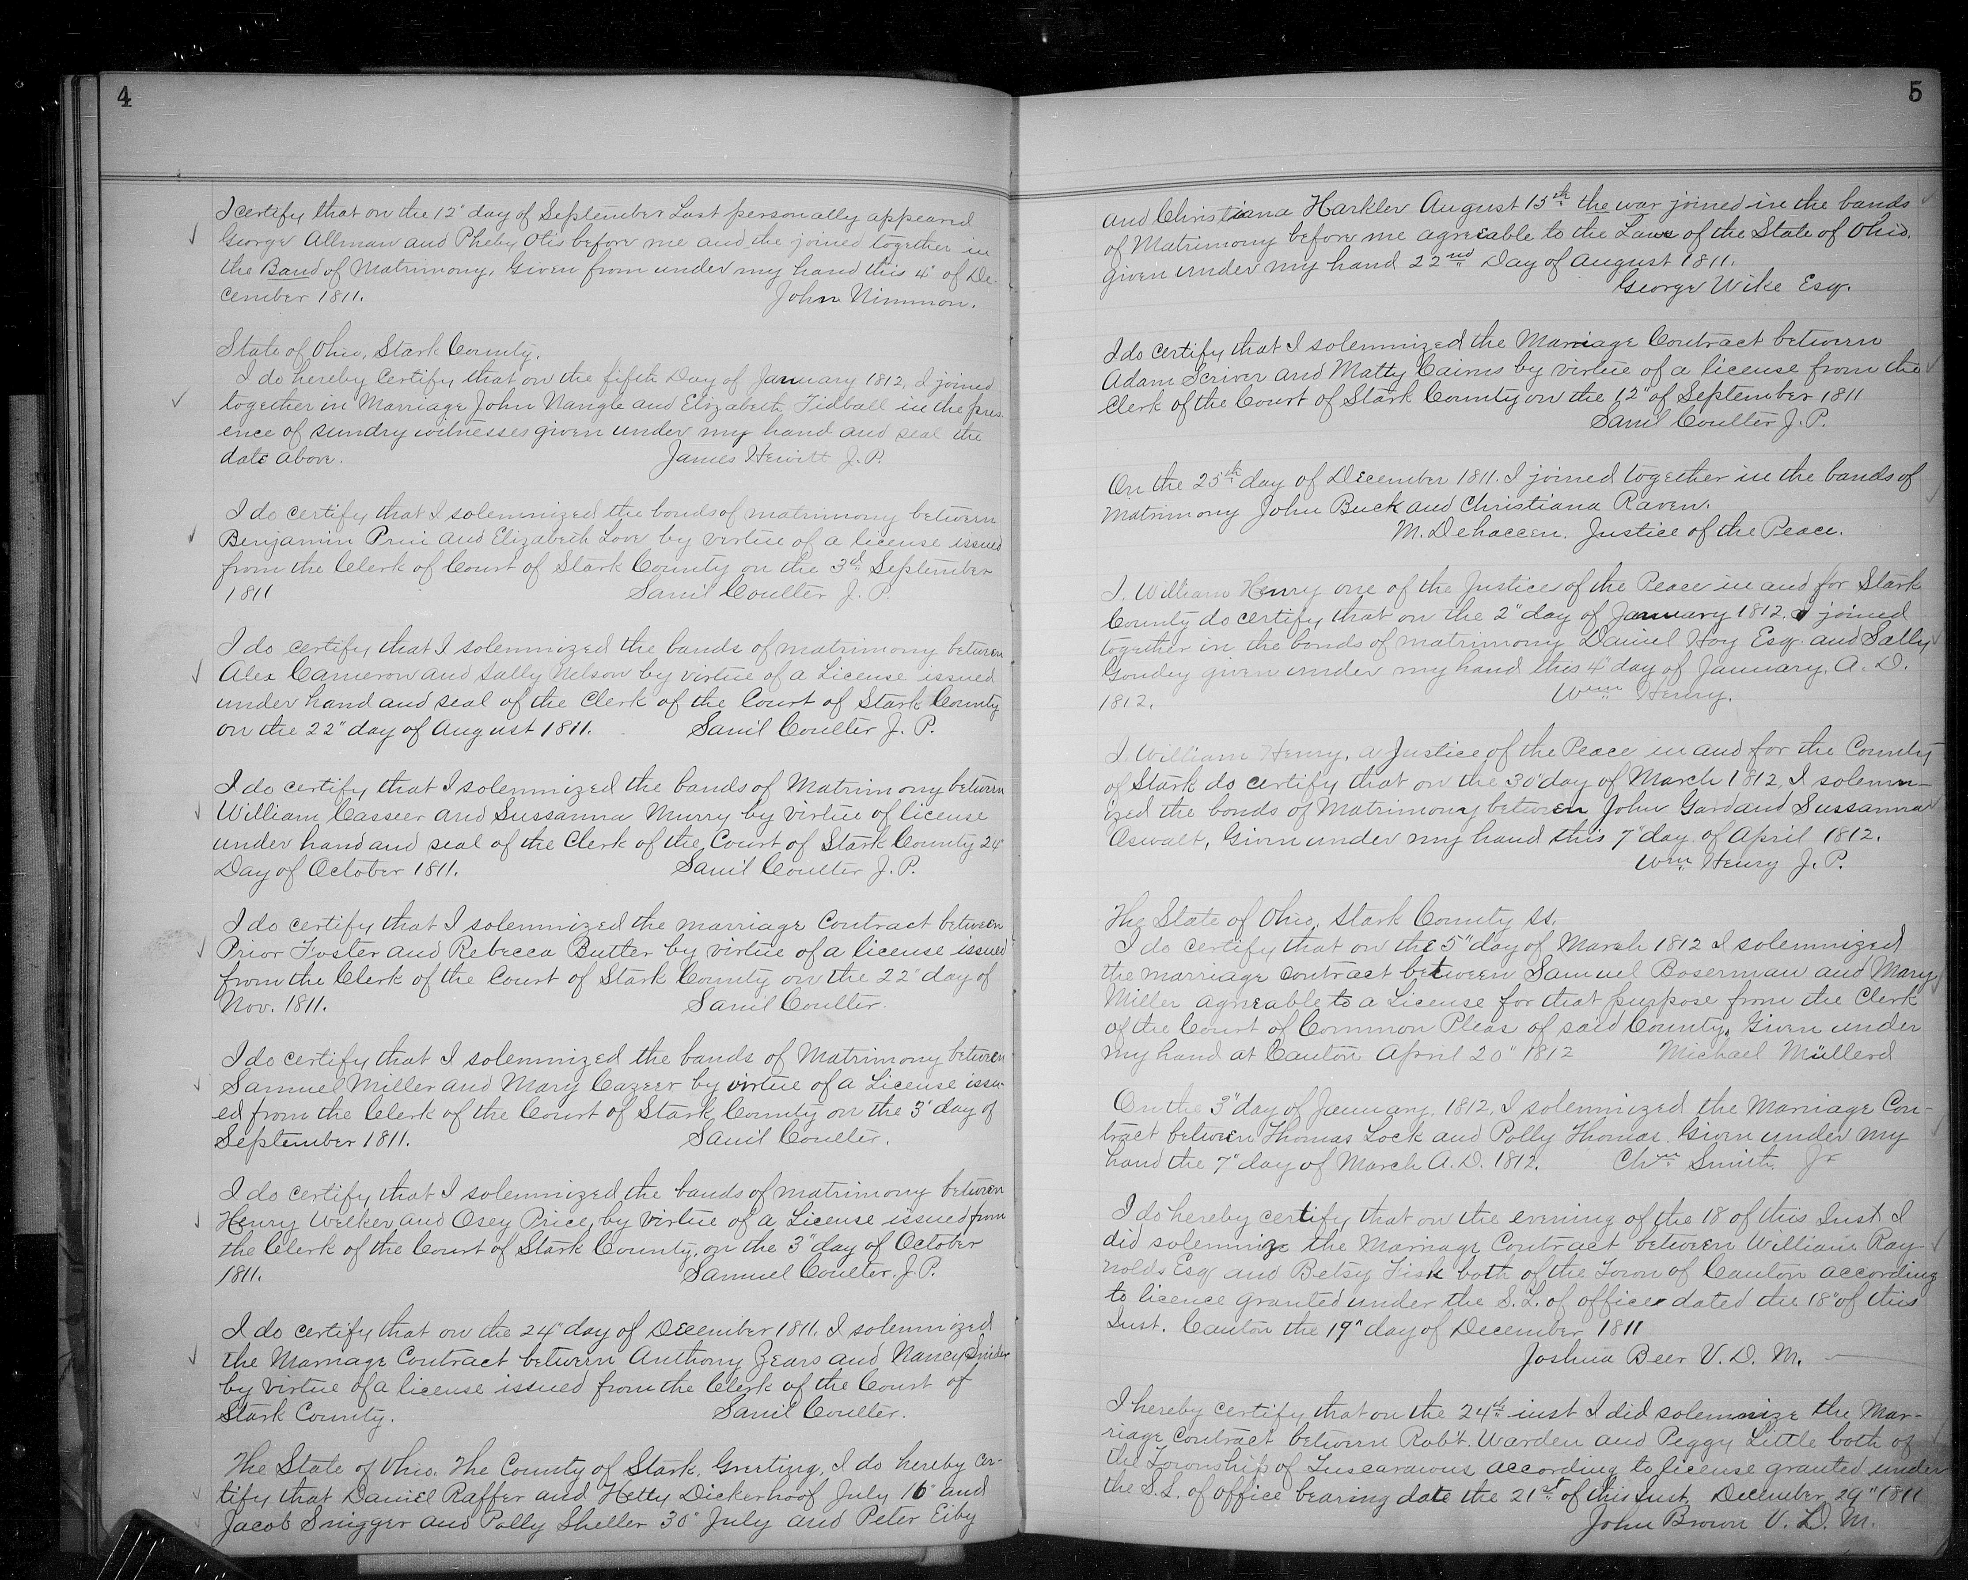 4
I certify that on the 12" day of September Last personally appeared
George Allman and Pheby Otis before me and the joined together in
the Band of Matrimony, Given from under my hand this 4" of De-
cember 1811. John Nimmon.
State of Ohio, Stark County.
I do hereby Certify that on the fifth Day of January 1812, I joined
together in Marriage John Nangle and Elizabeth Tidball in the pres-
ence of sundry witnesses given under my hand and seal the
date above. James Hewitt J. P.
I do certify that I solemnized the bonds of matrimony between
Benjamin Price and Elizabeth Love by virtue of a license issued
from the Clerk of Court of Stark County on the 3d. September
1811 Saml Coulter J. P.
I do certify that I solemnized the bands of matrimony between
Alex Cameron and Sally Nelson by virtue of a License issued
under hand and seal of the Clerk of the Court of Stark County
on the 22" day of August 1811. Saml Coulter J. P.
I do certify that I solemnized the bands of Matrimony between
William Casseer and Sussanna Murry by virtue of license
under hand and seal of the Clerk of the Court of Stark County 24"
Day of October 1811. Saml Coulter J. P.
I do certify that I solemnized the marriage Contract between
Prior Foster and Rebecca Butler by virtue of a license issued
from the Clerk of the Court of Stark County on the 22" day of
Nov. 1811. Saml Coulter.
I do certify that I solemnized the bands of Matrimony between
Samuel Miller and Mary Cazeer by virtue of a License issu-
ed from the Clerk of the Court of Stark County on the 3" day of
September 1811. Saml Coulter.
I do certify that I solemnized the bands of matrimony between
Henry Welker and Osey Price, by virtue of a License issued from
the Clerk of the Court of Stark County, on the 3" day of October
1811. Samuel Coulter. J. P.
I do certify that on the 24" day of December 1811. I solemnized
the Marriage Contract between Anthony Zears and Nancy Snider
by virtue of a license issued from the Clerk of the Court of
Stark County. Saml Coulter.
The State of Ohio. The County of Stark, Greeting, I do hereby cer-
tify that Daniel Raffer and Hetty Dickerhoof July 16" and
Jacob Snigger and Polly Sheller 30" July and Peter Eiby
5
and Christiana Harkler August 15th. the war joined in the bands
of Matrimony before me agreeable to the Laws of the State of Ohio.
given under my hand 22nd Day of August 1811.
George Wike Esq.
I do certify that I solemnized the Marriage Contract between
Adam Scriver and Matty Cairns by virtue of a license from the
Clerk of the Court of Stark County on the 12" of September 1811
Saml Coulter J. P.
On the 25th. day of December 1811. I joined together in the bands of
Matrimony John Buck and Christiana Raven.
M. Dehaccen. Justice of the Peace.
I. William Henry one of the Justice of the Peace in and for Stark
County do certify that on the 2" day of January 1812. I joined
together in the bonds of matrimony Daniel Hoy Esq. and Sally
Goudey given under my hand this 4" day of January. A. D.
1812. Wm. Henry.
I. William Henry, a Justice of the Peace in and for the County
of Stark do certify that on the 30" day of March 1812, I solemn-
ized the bonds of Matrimony between John Gard and Sussanna
Oswalt, Given under my hand this 7" day of April 1812.
Wm. Henry J. P.
The State of Ohio, Stark County ss.
I do certify that on the 5" day of March 1812 I solemnized
the marriage contract between Samuel Boserman and Mary
Miller agreable to a License for that purpose from the Clerk
of the Court of Common Pleas of said County, Given under
my hand at Canton April 20" 1812 Michael Müllerd
On the 3" day of January. 1812. I solemnized the Marriage Con-
tract between Thomas Lock and Polly Thomas. Given under my
hand the 7" day of March A. D. 1812. Chrn. Smith Jr
I do hereby certify that on the evening of the 18 of this Inst I
did solemnize the Marriage Contract between William Ray-
nolds Esq and Betsy Fisk both of the Town of Canton according
to licence granted under the S. L. of office dated the 18" of this
Inst. Canton the 19" day of December 1811
Joshua Beer V. D. M.
I hereby certify that on the 24th. inst I did solemnize the Mar-
riage Contract between Rob't. Warden and Peggy Little both of
the Township of Tuscarawus according to license granted under
the S. L. of office bearing date the 21st. of this inst. December 29" 1811
John Brown V. D. M.